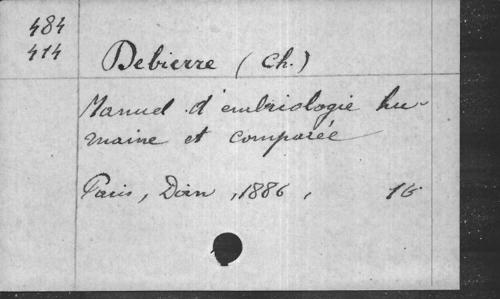 484
414
Debierre (Ch.)
Manuel d'embriologie hu-
maine et comparée
Paris, Doin, 1886,